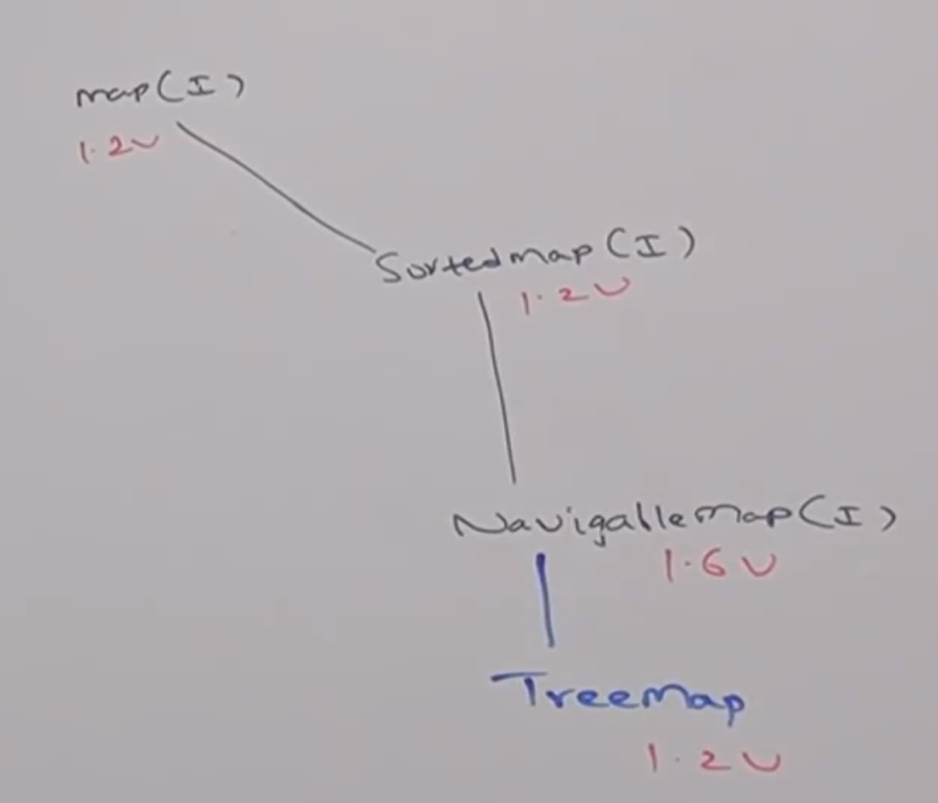 map(I)
1.2v
Sortedmap(I)
1.2v
Navigablemap(I)
1.6v
Treemap
1.2v